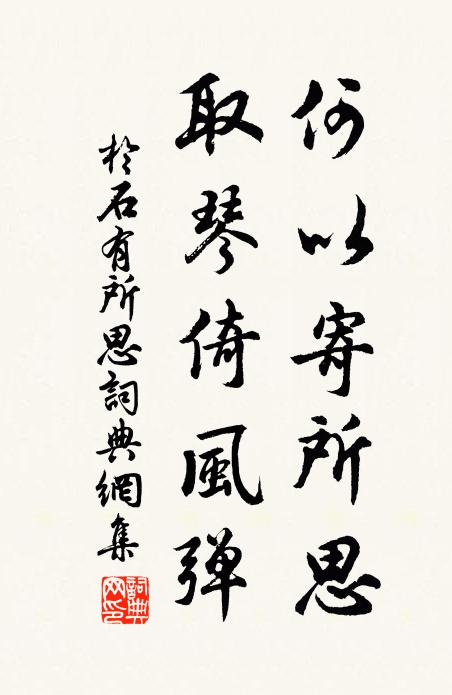 何以寄所思
取琴倚風弾
於石有所思詞典網集
詞典網印